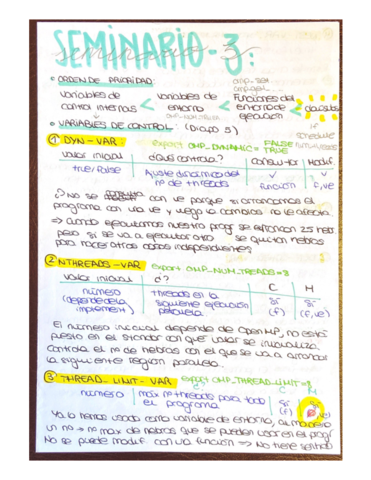 SEMINARIO-3:
seminario-3
• ORDEN DE PRIORIDAD:
variables de control internas < variables de entorno < Funciones del entorno de ejecución < cláusulas
omp_set
omp_get
OMP_NUM_
if
schedule
num_threads
• VARIABLES DE CONTROL: (Diapo 5)
① DYN-VAR: export OMP_DYNAMIC = FALSE TRUE
valor inicial ¿Qué controla? Consultar Modif
true/false Ajuste dinámico del nº de threads ✓ función ✓ f, ve
¿? No se con ve porque si arrancamos el
programa con una ve y luego la cambias no le afecta.
⇒ cuando ejecutamos nuestro prog se esperan 25 hebras
pero si se va a ejecutar otro se quitan hebras
para hacer otras cosas independientes
② NTHREADS-VAR export OMP_NUM_THREADS=8
valor inicial ¿? C M
número (depende de la implement) threads en la siguiente ejecución paralela si (f) si (f, ve)
El número inicial depende de OpenMP, no está
puesto en el standar con que valor se inicializa.
Controla el nº de hebras con el que se va a arrancar
la siguiente región paralela.
③ THREAD-LIMIT-VAR export OMP_THREAD_LIMIT=8
¿? C M
número máx nº threads para todo el programa si (f)
Ya lo hemos usado como variable de entorno, al
un nº → nº max de hebras que se pueden usar en el prog
No se puede modif. con una función → No tiene sentido